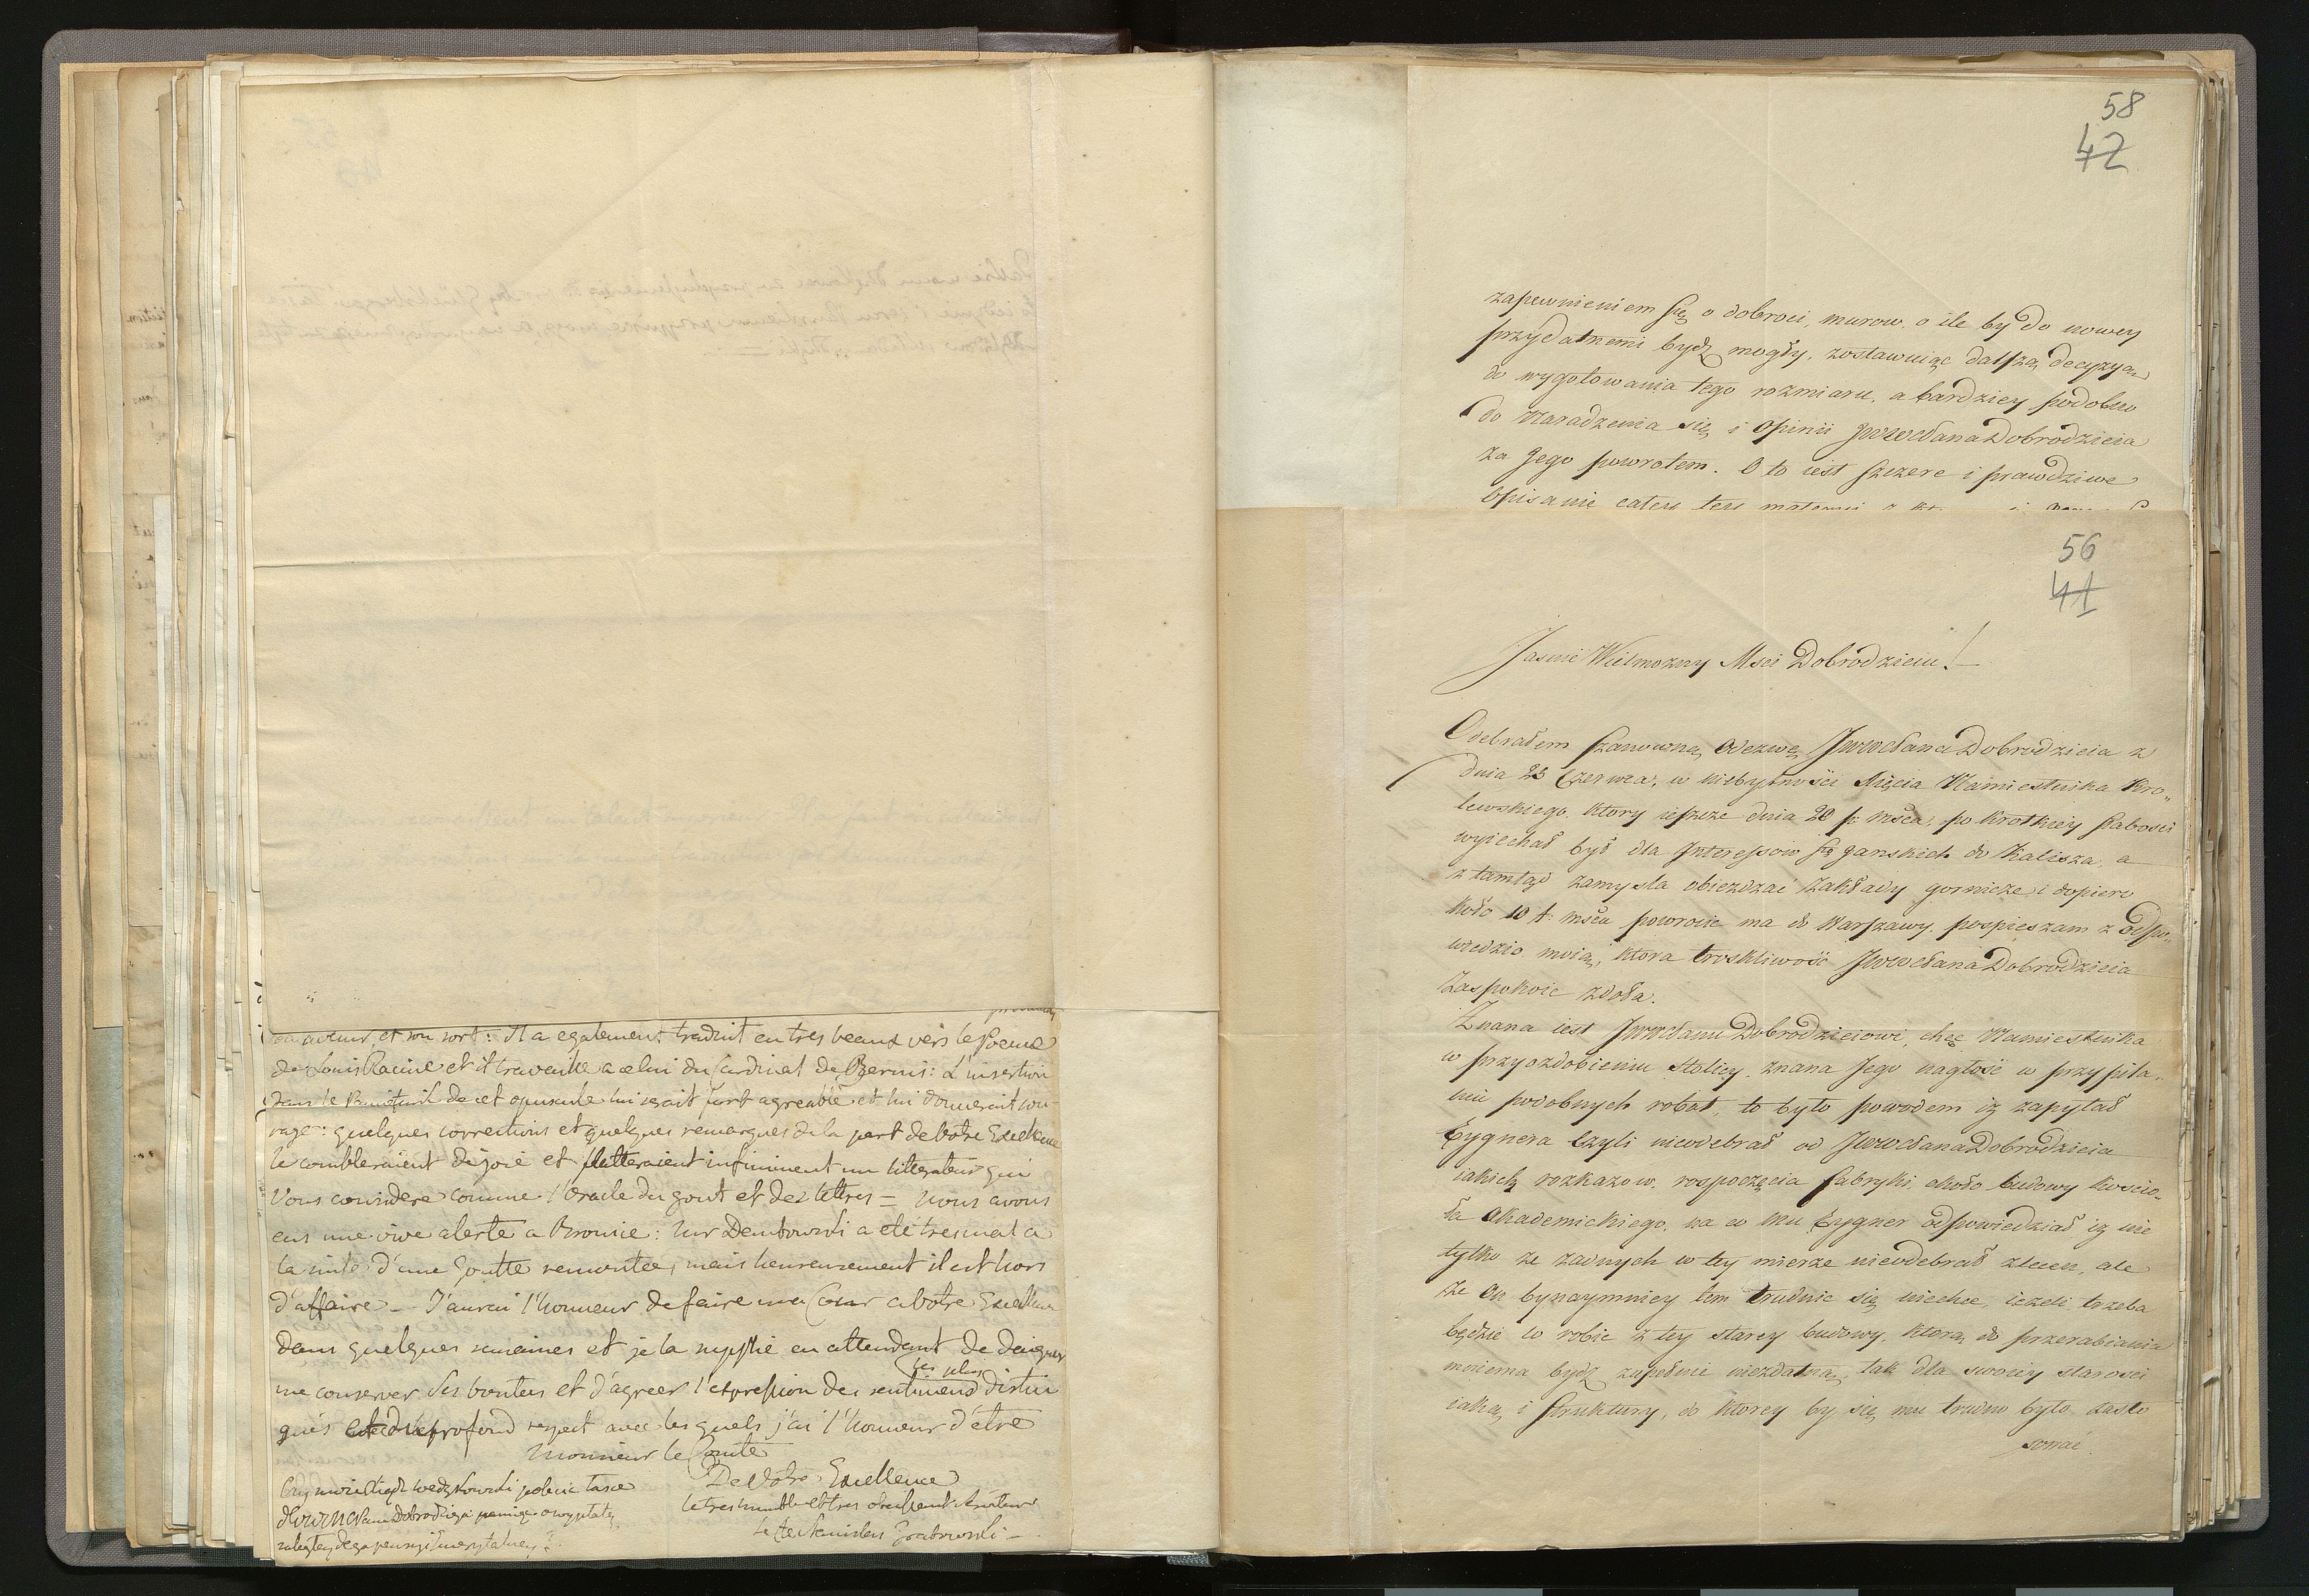 son avenir, et son sort: Il a egalement traduit en tres beaux vers le Poeme
de Louis Racine et il travaille a celui du Cardinal de Bernis: L'insertion
dans le de cet opuscule lui serait fort agreable et lui donnerait cou-
rage: quelques corrections et quelques remarques de la part de Votre Excellence
le combleraient de joie et flatteraient infiniment un litterateur qui
Vous considere comme l'Oracle du gout et des lettres = nous avons
eus une vive alerte a : Mr Dembowski a eté tres mal a
la suite d'une Goutte remontée, mais heureusement il est hors
d'affaire – J'aurai l'honneur de faire ma Cour a Votre Excellence
dans quelques semaines et je la supplie en attendant de daigner
me conserver ses bontés et d'agreer l'expression des sentimens les plus distin
gués et du profond respect avec lesquels j'ai l'honneur d'être
Monsieur le Comte
De Votre Excellence
le tres humble et tres obeissant Serviteur
le Cte Stanislas Grabowski –
polecic
JWWPana Dobrodzieja o wypłatę
58
42
zapewnieniem się o dobroci, murow. o ile by do nowey
przydatnemi bydź mogły, zostawuiąc dalszą decyzyą
do wygotowania tego rozmiaru, a bardziey podobno
do Naradzenia się i Opinii JWWPana Dobrodzieia
za Jego powrotem. O to iest szczere i prawdziwe
Opisanie całey tey
56
41
Jasnie Wielmożny Mści Dobrodzieiu!
Odebrałem szanowną Odezwę JWWPana Dobrodzieia z
dnia 23 Czerwca, w niebytności Xięcia Namiestnika Kro„
lewskiego, ktory ieszcze dnia 20 p. mśca, po krotkiey słabości
wyiechał był dla Interessow do Kalisza, a
z tamtąd zamysla obiezdzać Zakłady gornicze i dopiero
koło 10 t. mśca powrocic ma do Warszawy, pospieszam z odpo„
wiedzio moią, ktora troskliwość JWWPana Dobrodzieia
Zaspokoic zdoła.
Znana iest JWWPanu Dobrodzieiowi, chęć Namiestnika
w przyozdobieniu Stolicy, znana Jego nagłość w przyspiesza„
niu podobnych robot, to było powodem iż zapytał
Aygnera czyli nieodebrał od JWWPana Dobrodzieia
iakich rozkazow, rospoczęcia fabryki, około budowy koscio„
ła Akademickiego, na co mu Aygner odpowiedział iż nie
tylko że zadnych w tey mierze nieodebrał zlecen, ale
że on bynaymniey tem trudnic się niechce, iezeli trzeba
będzie to robic z tey starey budowy, ktorą do przerabiania
mniema bydź zupełnie niezdatną, tak dla swoiey starosci
iako i struktury, do ktorey by się mu trudno było zasto
sować.